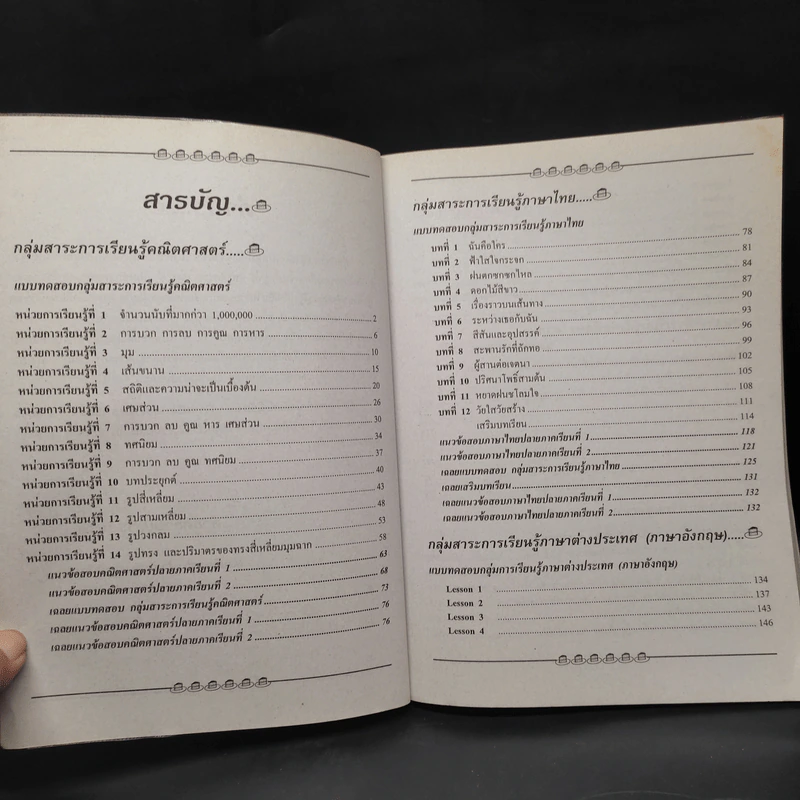 สารบัญ...
กลุ่มสาระการเรียนรู้คณิตศาสตร์.....
แบบทดสอบกลุ่มสาระการเรียนรู้คณิตศาสตร์
หน่วยการเรียนรู้ที่ 1 จำนวนนับที่มากกว่า 1,000,000 ..... 2
หน่วยการเรียนรู้ที่ 2 การบวก การลบ การคูณ การหาร ..... 6
หน่วยการเรียนรู้ที่ 3 มุม ..... 10
หน่วยการเรียนรู้ที่ 4 เส้นขนาน ..... 15
หน่วยการเรียนรู้ที่ 5 สถิติและความน่าจะเป็นเบื้องต้น ..... 20
หน่วยการเรียนรู้ที่ 6 เศษส่วน ..... 26
หน่วยการเรียนรู้ที่ 7 การบวก ลบ คูณ หาร เศษส่วน ..... 30
หน่วยการเรียนรู้ที่ 8 ทศนิยม ..... 34
หน่วยการเรียนรู้ที่ 9 การบวก ลบ คูณ ทศนิยม ..... 37
หน่วยการเรียนรู้ที่ 10 บทประยุกต์ ..... 40
หน่วยการเรียนรู้ที่ 11 รูปสี่เหลี่ยม ..... 43
หน่วยการเรียนรู้ที่ 12 รูปสามเหลี่ยม ..... 48
หน่วยการเรียนรู้ที่ 13 รูปวงกลม ..... 53
หน่วยการเรียนรู้ที่ 14 รูปทรง และปริมาตรของทรงสี่เหลี่ยมมุมฉาก ..... 58
แนวข้อสอบคณิตศาสตร์ปลายภาคเรียนที่ 1 ..... 63
แนวข้อสอบคณิตศาสตร์ปลายภาคเรียนที่ 2 ..... 68
เฉลยแบบทดสอบ กลุ่มสาระการเรียนรู้คณิตศาสตร์ ..... 73
เฉลยแนวข้อสอบคณิตศาสตร์ปลายภาคเรียนที่ 1 ..... 76
เฉลยแนวข้อสอบคณิตศาสตร์ปลายภาคเรียนที่ 2 ..... 76
กลุ่มสาระการเรียนรู้ภาษาไทย.....
แบบทดสอบกลุ่มสาระการเรียนรู้ภาษาไทย
บทที่ 1 ฉันคือใคร ..... 78
บทที่ 2 ฟ้าใสใจกระจก ..... 81
บทที่ 3 ฝนตกซกซกไหล ..... 84
บทที่ 4 ดอกไม้สีขาว ..... 87
บทที่ 5 เรื่องราวบนเส้นทาง ..... 90
บทที่ 6 ระหว่างเธอกับฉัน ..... 93
บทที่ 7 สีสันและอุปสรรค์ ..... 96
บทที่ 8 สะพานรักที่ถักทอ ..... 99
บทที่ 9 ผู้สานต่อเจตนา ..... 102
บทที่ 10 ปริศนาโพธิ์สามต้น ..... 105
บทที่ 11 หยาดฝนชโลมใจ ..... 108
บทที่ 12 วัยใสวัยสร้าง ..... 111
เสริมบทเรียน ..... 114
แนวข้อสอบภาษาไทยปลายภาคเรียนที่ 1 ..... 118
แนวข้อสอบภาษาไทยปลายภาคเรียนที่ 2 ..... 121
เฉลยแบบทดสอบ กลุ่มสาระการเรียนรู้ภาษาไทย ..... 125
เฉลยเสริมบทเรียน ..... 131
เฉลยแนวข้อสอบภาษาไทยปลายภาคเรียนที่ 1 ..... 132
เฉลยแนวข้อสอบภาษาไทยปลายภาคเรียนที่ 2 ..... 132
กลุ่มสาระการเรียนรู้ภาษาต่างประเทศ (ภาษาอังกฤษ).....
แบบทดสอบกลุ่มการเรียนรู้ภาษาต่างประเทศ (ภาษาอังกฤษ)
Lesson 1 ..... 134
Lesson 2 ..... 137
Lesson 3 ..... 143
Lesson 4 ..... 146